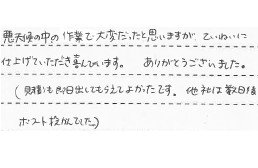 悪天候の中の作業で大変だったと思いますが ていねいに
仕上げていただき喜んでいます。 ありがとうございました。
(見積も即日出してもらえてよかったです。他社は数日後
ポスト投かんでした)